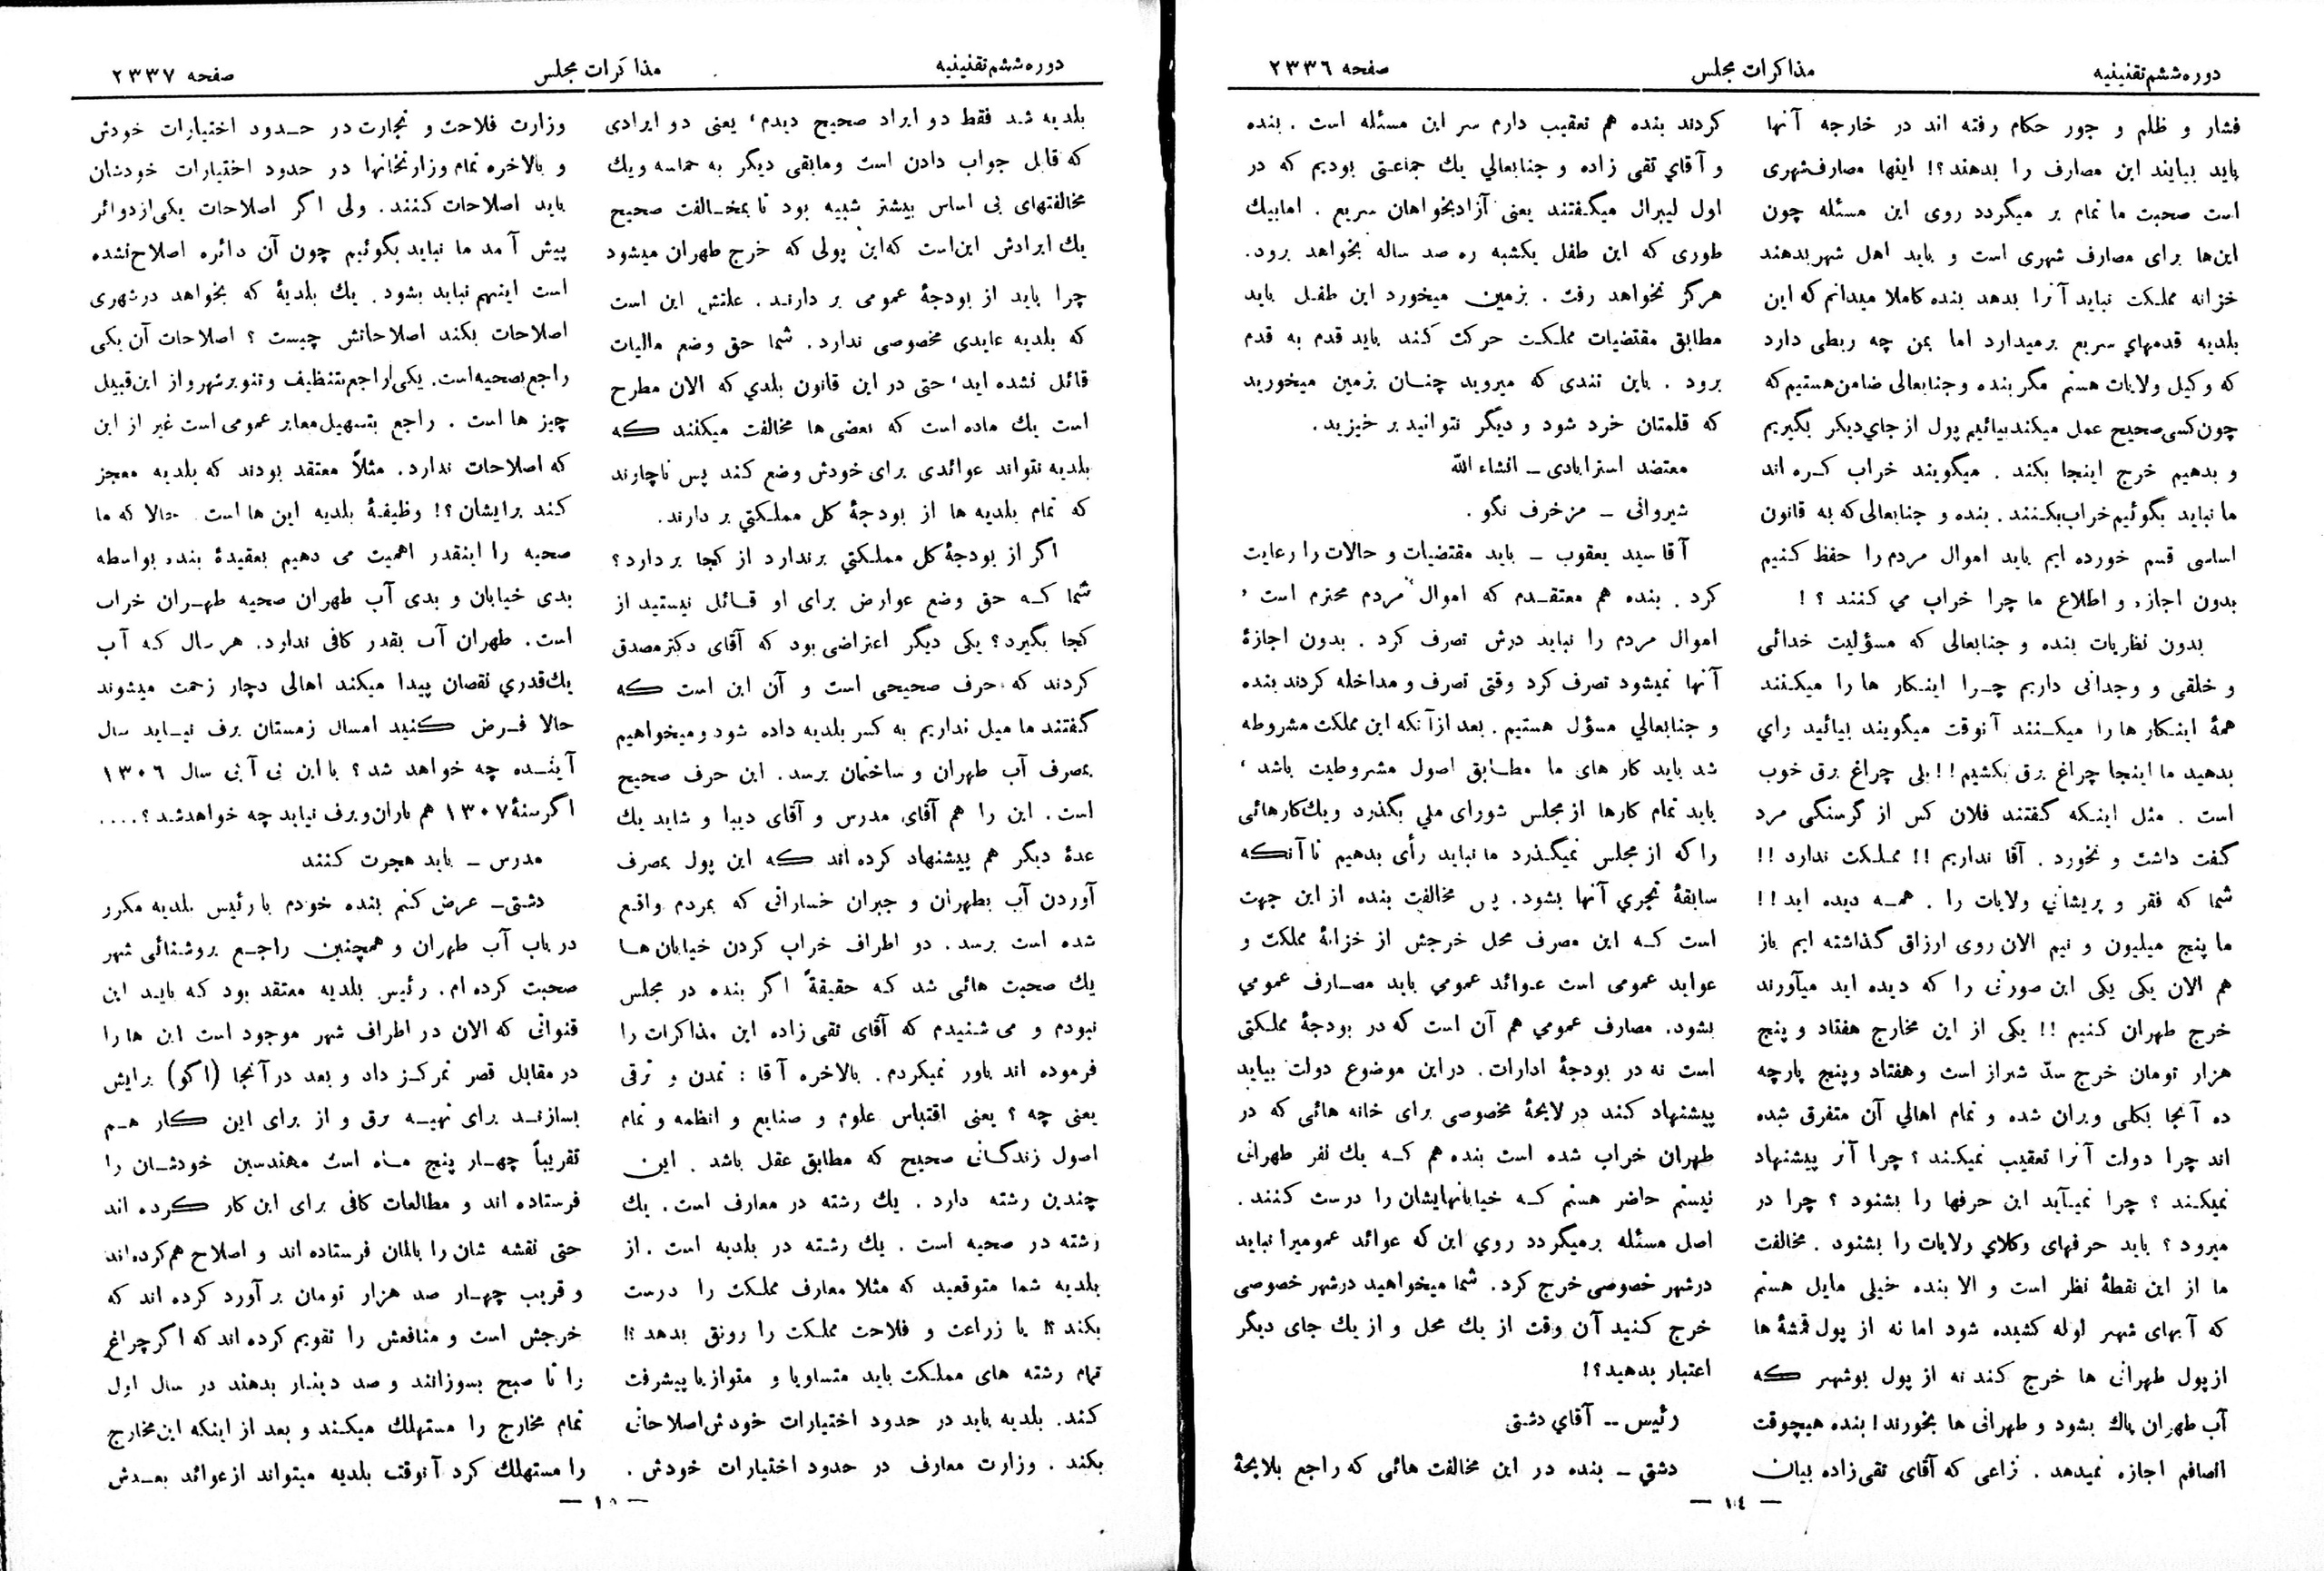 دوره ششم تقنینیه
مذاکرات مجلس
صفحه ۲۳۳۶
فشار و ظلم و جور حکام رفته اند در خارجه آنها
باید بیایند این مصارف را بدهند؟! اینها مصارف شهری
است صحبت ما تمام بر میگردد روی این مسئله چون
این‌ها برای مصارف شهری است و باید اهل شهر بدهند
خزانه مملکت نباید آنرا بدهد بنده کاملا میدانم که این
بلدیه قدمهای سریع برمیدارد اما بمن چه ربطی دارد
که وکیل ولایات هستم مگر بنده و جنابعالی ضامن هستیم که
چون کسی صحیح عمل میکند بیائیم پول از جای دیگر بگیریم
و بدهیم خرج اینجا بکند . میگویند خراب کره اند
ما نباید بگوئیم خراب بکنند. بنده و جنابعالی که به قانون
اساسی قسم خورده ایم باید اموال مردم را حفظ کنیم
بدون اجازه و اطلاع ما چرا خراب می کنند ؟ !
بدون نظریات بنده و جنابعالی که مسؤلیت خدائی
و خلقی و وجدانی داریم چرا اینکار ها را میکنند
همهٔ اینکار ها را میکنند آنوقت میگویند بیائید رای
بدهید ما اینجا چراغ برق بکشیم!! بلی چراغ برق خوب
است . مثل اینکه گفتند فلان کس از گرسنگی مرد
گفت داشت و نخورد . آقا نداریم !! مملکت ندارد !!
شما که فقر و پریشانی ولایات را . همه دیده اید !!
ما پنج میلیون و نیم الان روی ارزاق گذاشته ایم باز
هم الان یکی یکی این صورتی را که دیده اید میآورند
خرج طهران کنیم !! یکی از این مخارج هفتاد و پنج
هزار تومان خرج سدّ شیراز است و هفتاد و پنج پارچه
ده آنجا بکلی ویران شده و تمام اهالی آن متفرق شده
اند چرا دولت آنرا تعقیب نمیکند ؟ چرا آنر پیشنهاد
نمیکند ؟ چرا نمیآید این حرفها را بشنود ؟ چرا در
میرود ؟ باید حرفهای وکلای ولایات را بشنود . مخالفت
ما از این نقطهٔ نظر است و الا بنده خیلی مایل هستم
که آبهای شهر لوله کشیده شود اما نه از پول قمشهٔ ها
از پول طهرانی ها خرج کند نه از پول بوشهر که
آب طهران پاك بشود و طهرانی ها بخورند! بنده هیچوقت
انصافم اجازه نمیدهد . نزاعی که آقای تقی زاده بیان
کردند بنده هم تعقیب دارم سر این مسئله است . بنده
و آقای تقی زاده و جنابعالی یك جماعتی بودیم که در
اول لیبرال میگفتند یعنی آزادیخواهان سریع . اما بیك
طوری که این طفل یکشبه ره صد ساله بخواهد برود.
هرگز نخواهد رفت . بزمین میخورد این طفل باید
مطابق مقتضیات مملکت حرکت کند باید قدم به قدم
برود . باین تندی که میروید چنان بزمین میخورید
که قلمتان خرد شود و دیگر نتوانید بر خیزید.
معتضد استرابادی ــ انشاء الله
شیروانی ــ مزخرف نگو .
آقا سید یعقوب ــ باید مقتضیات و حالات را رعایت
کرد . بنده هم معتقدم که اموال مردم محترم است ،
اموال مردم را نباید درش تصرف کرد . بدون اجازهٔ
آنها نمیشود تصرف کرد وقتی تصرف و مداخله کردند بنده
و جنابعالی مسؤل هستیم . بعد از آنکه این مملکت مشروطه
شد باید کار های ما مطابق اصول مشروطیت باشد ،
باید تمام کارها از مجلس شورای ملی بگذرد و یك کارهائی
را که از مجلس نمیگذرد ما نباید رأی بدهیم تا آنکه
سابقهٔ تجری آنها بشود . پس مخالفت بنده از این جهت
است که این مصرف محل خرجش از خزانهٔ مملکت و
عواید عمومی است عوائد عمومی باید مصارف عمومی
بشود. مصارف عمومی هم آن است که در بودجهٔ مملکتی
است نه در بودجهٔ ادارات. در این موضوع دولت بیاید
پیشنهاد کند در لایحهٔ مخصوصی برای خانه هائی که در
طهران خراب شده است بنده هم که یك نفر طهرانی
نیستم حاضر هستم که خیابانهایشان را درست کنند .
اصل مسئله برمیگردد روی این که عوائد عمومیرا نباید
در شهر خصوصی خرج کرد. شما میخواهید در شهر خصوصی
خرج کنید آن وقت از یك محل و از یك جای دیگر
اعتبار بدهید؟!
رئیس ــ آقای دشتی
دشتی ــ بنده در این مخالفت هائی که راجع بلایحهٔ
— ۱۴ —
دوره ششم تقنینیه
مذاکرات مجلس
صفحه ۲۳۳۷
بلدیه شد فقط دو ایراد صحیح دیدم، یعنی دو ایرادی
که قابل جواب دادن است و مابقی دیگر به حماسه و یك
مخالفتهای بی اساس بیشتر شبیه بود تا بمخالفت صحیح
یك ایرادش این است که این پولی که خرج طهران میشود
چرا باید از بودجهٔ عمومی بر دارند. علتش این است
که بلدیه عایدی مخصوصی ندارد. شما حق وضع مالیات
قائل نشده اید، حتی در این قانون بلدی که الان مطرح
است یك ماده است که بعضی ها مخالفت میکنند که
بلدیه نتواند عوائدی برای خودش وضع کند پس ناچارند
که تمام بلدیه ها از بودجهٔ کل مملکتی بر دارند.
اگر از بودجهٔ کل مملکتی برندارد از کجا بر دارد ؟
شما که حق وضع عوارض برای او قائل نیستید از
کجا بگیرد؟ یکی دیگر اعتراضی بود که آقای دکتر مصدق
کردند که حرف صحیحی است و آن این است که
گفتند ما میل نداریم به کسر بلدیه داده شود و میخواهیم
بمصرف آب طهران و ساختمان برسد. این حرف صحیح
است . این را هم آقای مدرس و آقای دیبا و شاید یك
عدهٔ دیگر هم پیشنهاد کرده اند که این پول بمصرف
آوردن آب بطهران و جبران خساراتی که بمردم واقع
شده است برسد. دو اطراف خراب کردن خیابان ها
یك صحبت هائی شد که حقیقهً اگر بنده در مجلس
نبودم و می شنیدم که آقای تقی زاده این مذاکرات را
فرموده اند باور نمیکردم. بالاخره آقا : تمدن و ترقی
یعنی چه ؟ یعنی اقتباس علوم و صنایع و انظمه و تمام
اصول زندگانی صحیح که مطابق عقل باشد . این
چندین رشته دارد . یك رشته در معارف است. یك
رشته در صحیه است . یك رشته در بلدیه است . از
بلدیه شما متوقعید که مثلا معارف مملکت را درست
بکند ؟! یا زراعت و فلاحت مملکت را رونق بدهد ؟!
تمام رشته های مملکت باید متساویا و متوازیا پیشرفت
کند. بلدیه باید در حدود اختیارات خودش اصلاحاتی
بکند . وزارت معارف در حدود اختیارات خودش .
وزارت فلاحت و تجارت در حدود اختیارات خودش
و بالاخره تمام وزارتخانها در حدود اختیارات خودشان
باید اصلاحات کنند. ولی اگر اصلاحات یکی از دوائر
پیش آمد ما نباید بگوئیم چون آن دائره اصلاح نشده
است اینهم نباید بشود. یك بلدیهٔ که بخواهد در شهری
اصلاحات بکند اصلاحاتش چیست ؟ اصلاحات آن یکی
راجع بصحیه است. یکی راجع بتنظیف و تنویر شهر و از این قبیل
چیز ها است . راجع بتسهیل معابر عمومی است غیر از این
که اصلاحات ندارد. مثلاً معتقد بودند که بلدیه معجز
کند برایشان؟! وظیفهٔ بلدیه این ها است. حالا که ما
صحیه را اینقدر اهمیت می دهیم بعقیدهٔ بنده بواسطه
بدی خیابان و بدی آب طهران صحیه طهران خراب
است. طهران آب بقدر کافی ندارد. هر سال که آب
یك قدری نقصان پیدا میکند اهالی دچار زحمت میشوند
حالا فرض کنید امسال زمستان برف نیاید سال
آینده چه خواهد شد؟ با این بی آبی سال ۱۳۰۶
اگر سنهٔ ۱۳۰۷ هم باران و برف نیاید چه خواهد شد؟....
مدرس ــ باید هجرت کنند
دشتی ــ عرض کنم بنده خودم با رئیس بلدیه مکرر
در باب آب طهران و همچنین راجع بروشنائی شهر
صحبت کرده ام. رئیس بلدیه معتقد بود که باید این
قنواتی که الان در اطراف شهر موجود است این ها را
در مقابل قصر تمرکز داد و بعد در آنجا (اگو) برایش
بسازند برای تهیه برق و از برای این کار هم
تقریباً چهار پنج ماه است مهندسین خودشان را
فرستاده اند و مطالعات کافی برای این کار کرده اند
حتی نقشه شان را بالمان فرستاده اند و اصلاح هم کرده اند
و قریب چهار صد هزار تومان بر آورد کرده اند که
خرجش است و منافعش را تقویم کرده اند که اگر چراغ
را تا صبح بسوزانند و صد دینار بدهند در سال اول
تمام مخارج را مستهلك میکند و بعد از اینکه این مخارج
را مستهلك کرد آنوقت بلدیه میتواند از عوائد بعدش
— ۱۵ —